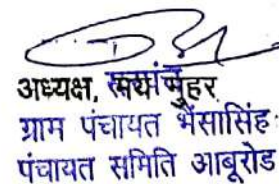 अध्यक्ष, मुहर
ग्राम पंचायत भैंसासिंह
पंचायत समिति आबूरोड